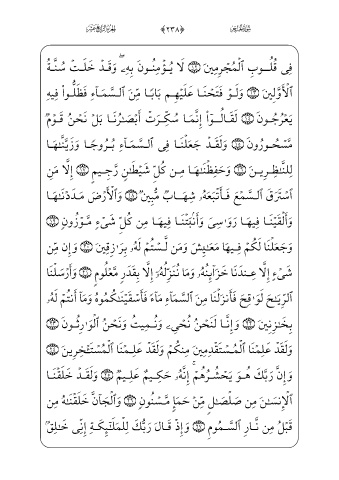 سُورَةُ الحِجْرِ ﴿٢٣٨﴾ الجُزْءُ الرَّابِعَ عَشَرَ
فِى قُلُوبِ ٱلْمُجْرِمِينَ ١٢ لَا يُؤْمِنُونَ بِهِۦ وَقَدْ خَلَتْ سُنَّةُ
ٱلْأَوَّلِينَ ١٣ وَلَوْ فَتَحْنَا عَلَيْهِم بَابًا مِّنَ ٱلسَّمَآءِ فَظَلُّوا۟ فِيهِ
يَعْرُجُونَ ١٤ لَقَالُوٓا۟ إِنَّمَا سُكِّرَتْ أَبْصَٰرُنَا بَلْ نَحْنُ قَوْمٌ
مَّسْحُورُونَ ١٥ وَلَقَدْ جَعَلْنَا فِى ٱلسَّمَآءِ بُرُوجًا وَزَيَّنَّٰهَا
لِلنَّٰظِرِينَ ١٦ وَحَفِظْنَٰهَا مِن كُلِّ شَيْطَٰنٍ رَّجِيمٍ ١٧ إِلَّا مَنِ
ٱسْتَرَقَ ٱلسَّمْعَ فَأَتْبَعَهُۥ شِهَابٌ مُّبِينٌ ١٨ وَٱلْأَرْضَ مَدَدْنَٰهَا
وَأَلْقَيْنَا فِيهَا رَوَٰسِىَ وَأَنۢبَتْنَا فِيهَا مِن كُلِّ شَىْءٍ مَّوْزُونٍ ١٩
وَجَعَلْنَا لَكُمْ فِيهَا مَعَٰيِشَ وَمَن لَّسْتُمْ لَهُۥ بِرَٰزِقِينَ ٢٠ وَإِن مِّن
شَىْءٍ إِلَّا عِندَنَا خَزَآئِنُهُۥ وَمَا نُنَزِّلُهُۥٓ إِلَّا بِقَدَرٍ مَّعْلُومٍ ٢١ وَأَرْسَلْنَا
ٱلرِّيَٰحَ لَوَٰقِحَ فَأَنزَلْنَا مِنَ ٱلسَّمَآءِ مَآءً فَأَسْقَيْنَٰكُمُوهُ وَمَآ أَنتُمْ لَهُۥ
بِخَٰزِنِينَ ٢٢ وَإِنَّا لَنَحْنُ نُحْىِۦ وَنُمِيتُ وَنَحْنُ ٱلْوَٰرِثُونَ ٢٣
وَلَقَدْ عَلِمْنَا ٱلْمُسْتَقْدِمِينَ مِنكُمْ وَلَقَدْ عَلِمْنَا ٱلْمُسْتَـْٔخِرِينَ ٢٤
وَإِنَّ رَبَّكَ هُوَ يَحْشُرُهُمْ إِنَّهُۥ حَكِيمٌ عَلِيمٌ ٢٥ وَلَقَدْ خَلَقْنَا
ٱلْإِنسَٰنَ مِن صَلْصَٰلٍ مِّنْ حَمَإٍ مَّسْنُونٍ ٢٦ وَٱلْجَآنَّ خَلَقْنَٰهُ مِن
قَبْلُ مِن نَّارِ ٱلسَّمُومِ ٢٧ وَإِذْ قَالَ رَبُّكَ لِلْمَلَٰٓئِكَةِ إِنِّى خَٰلِقٌۢ